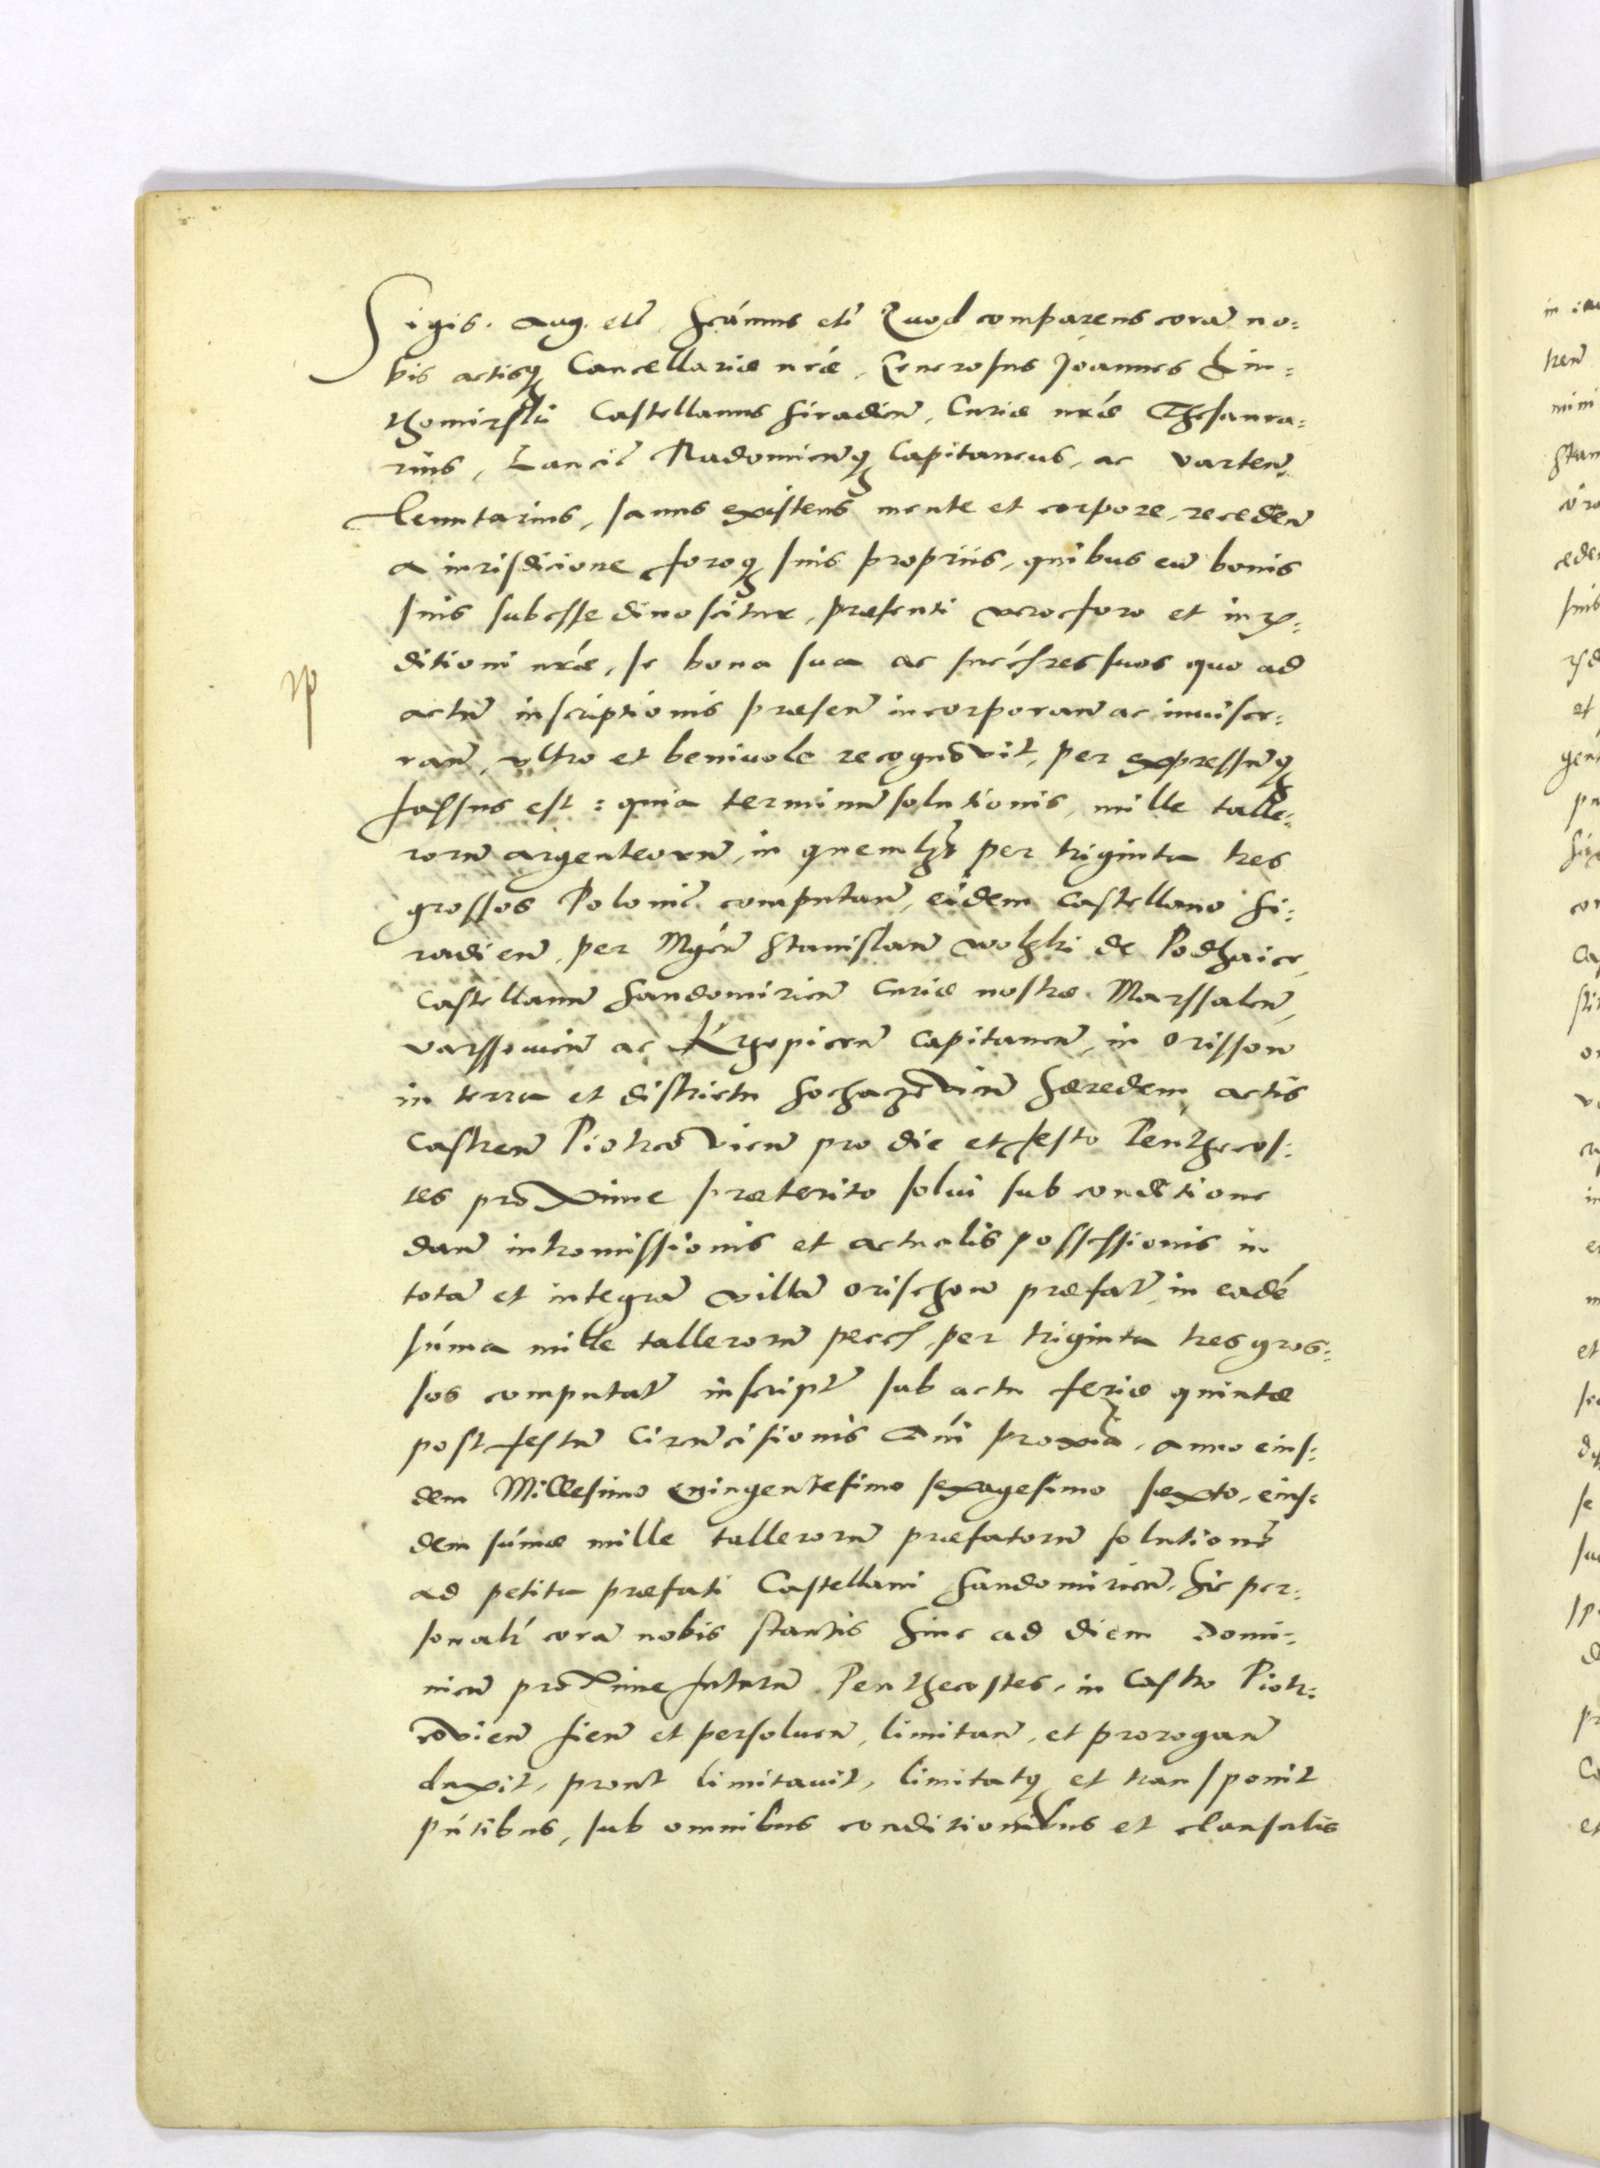 Sigis. Aug. etc̃. Scimus etc̃ Quod comparens corã no=
bis actisq̨ Cancellariæ nr̃æ, Generosus Joannes Lu=
thomirski Castellanus Siradieñ, Curiæ nr̃æ Thesaura=
rius, Lancic̃ Radomieñq̨ Capitaneus, ac varteñ.
tenutarius, sanus existens mente et corpore, recedeñ
a iurisdicione foroq̨ suis propriis, quibus cũ bonis
suis subesse dinoscitur, præsenti vero foro et iuris=
ditioni nr̃æ, se bona sua ac succr̃es suos quo ad
actũ inscriptionis præseñ incorporañ ac inviscer=
rañ, ultro et benivole recognovit, per expressũq̨
fassus est: quia terminũ solutionis, mille talle=
rorũ argenteorũ, in quemlꝫt per triginta tres
grossos Polonic̃ computañ, eidem Castellano Si=
radieñ, per Mgcũ Stanislaũ Wolski de Podhaice,
Castellanũ Sandomirieñ Curiæ nostræ Marssalcũ,
varssovieñ ac Krzepiceñ Capitaneũ, in Orissow
in terra et districtu Sochaczevieñ hæredem, actis
Castreñ Piotrcovieñ pro die et festo Penthecos=
tes proxime præterito solvi sub conditione
dañ intromissionis et actualis possessionis in
totã et integrã villã Orischow præfat̃, in eadé
súma mille tallerorũ pecc̃, per triginta tres gros=
sos computat̃ inscript̃ sub actu feriæ quintæ
post festũ Circũcisionis Dńi proxiã, anno eius=
dem Millesimo quingentesimo sexagesimo sexto, eius=
dem súmæ mille tallerorũ præfatorũ solutionẽ
ad petita præfati Castellani Sandomirieñ, hic per=
sonalr̃ corã nobis stantis hinc ad diem Domi=
nicũ proxime futurũ Penthecostes, in Castro Piotr=
covieñ fieñ et persolveñ, limitañ, et prorogañ
duxit, prout limitavit, limitatq̨ et transponit
pńtibus, sub omnibus conditionibus et clausulis